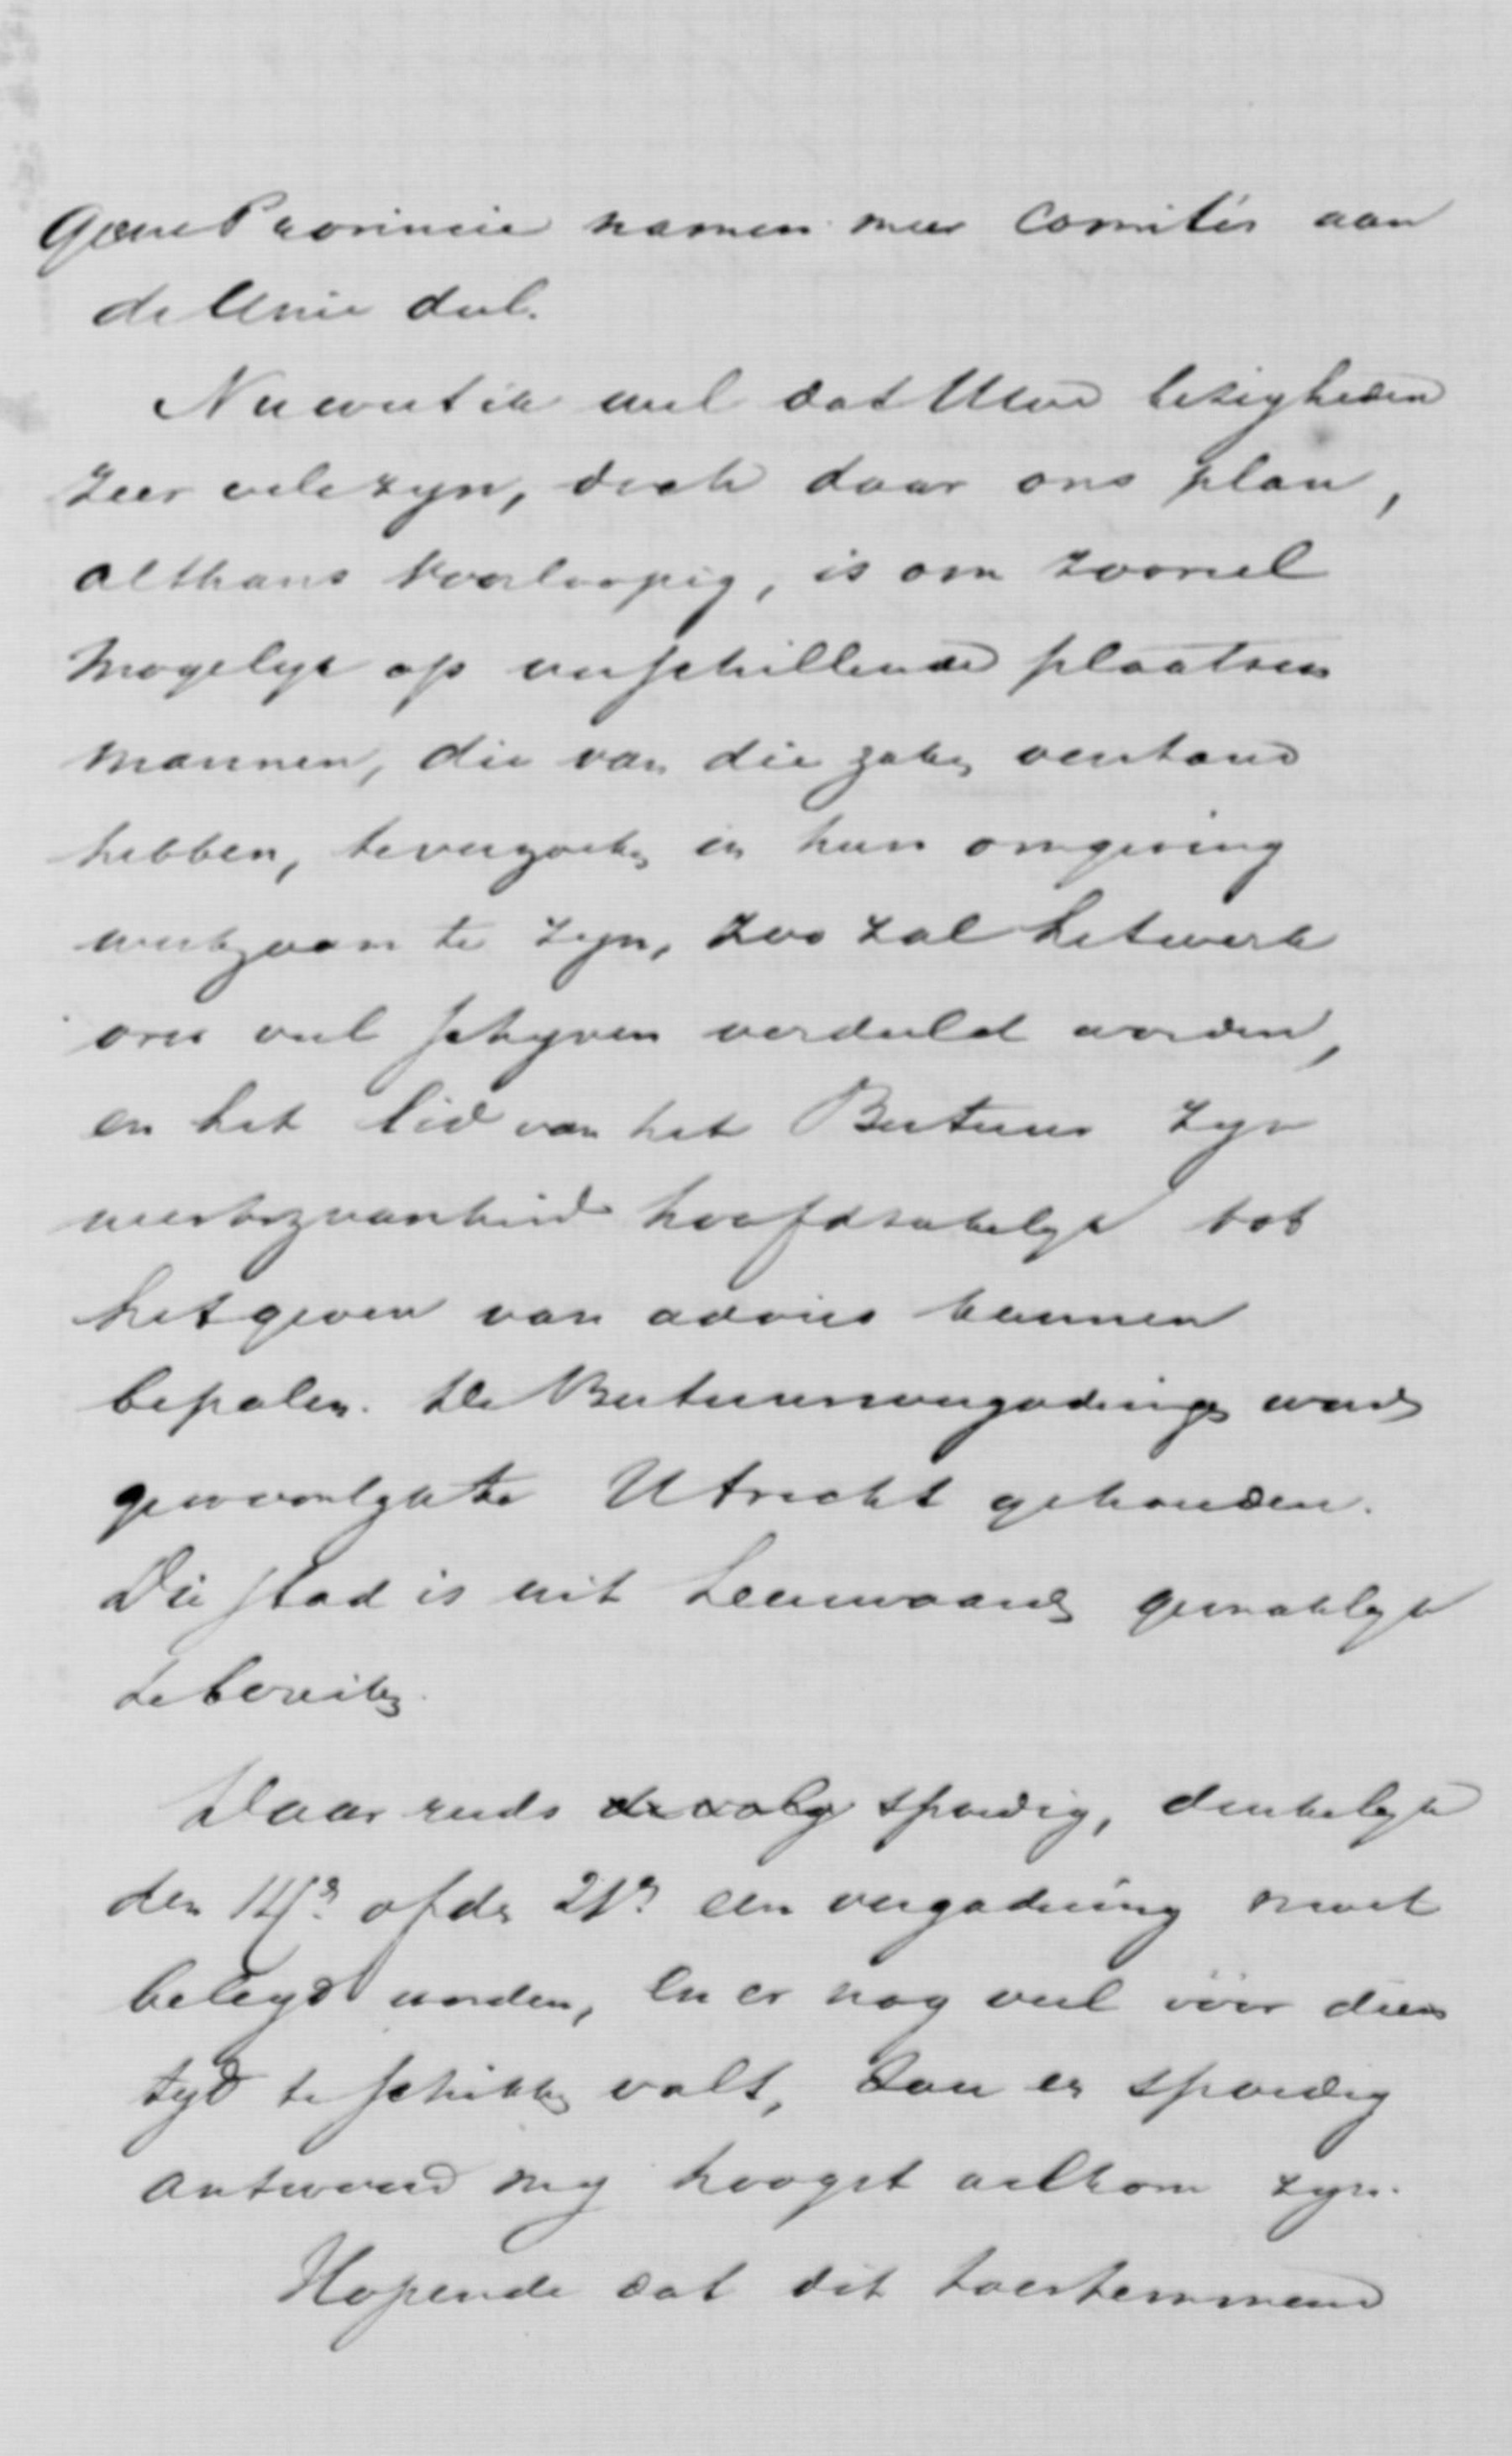 Geene Provincie namen meer comités aan
de Unie deel.
Nu weet ik wel dat Uwe bezigheden
zeer vele zyn, doch daar ons plan,
althans voorloopig, is om zooveel
mogelyk op verschillende plaatsen
mannen, die van die zaken verstand
hebben, te verzoeken in hun omgeving
werkzaam te zyn, zoo zal het werk
over veel schyven verdeeld worden,
en het lid van het Bestuur zyn
werkzaamheid hoofdzakelyk tot
het geven van advies kunnen
bepalen. De Bestuursvergaderingen worden
gewoonlyk te Utrecht gehouden.
Die stad is uit Leeuwaarden gemakkelyk
te bereiken.
Daar reeds spoedig, denkelyk
den 14n of den 21n een vergadering moet
belegd worden, en er nog veel vóór dien
tyd te schikken valt, zou een spoedig
antwoord my hoogst welkom zyn.
Hopende dat dit toestemmend